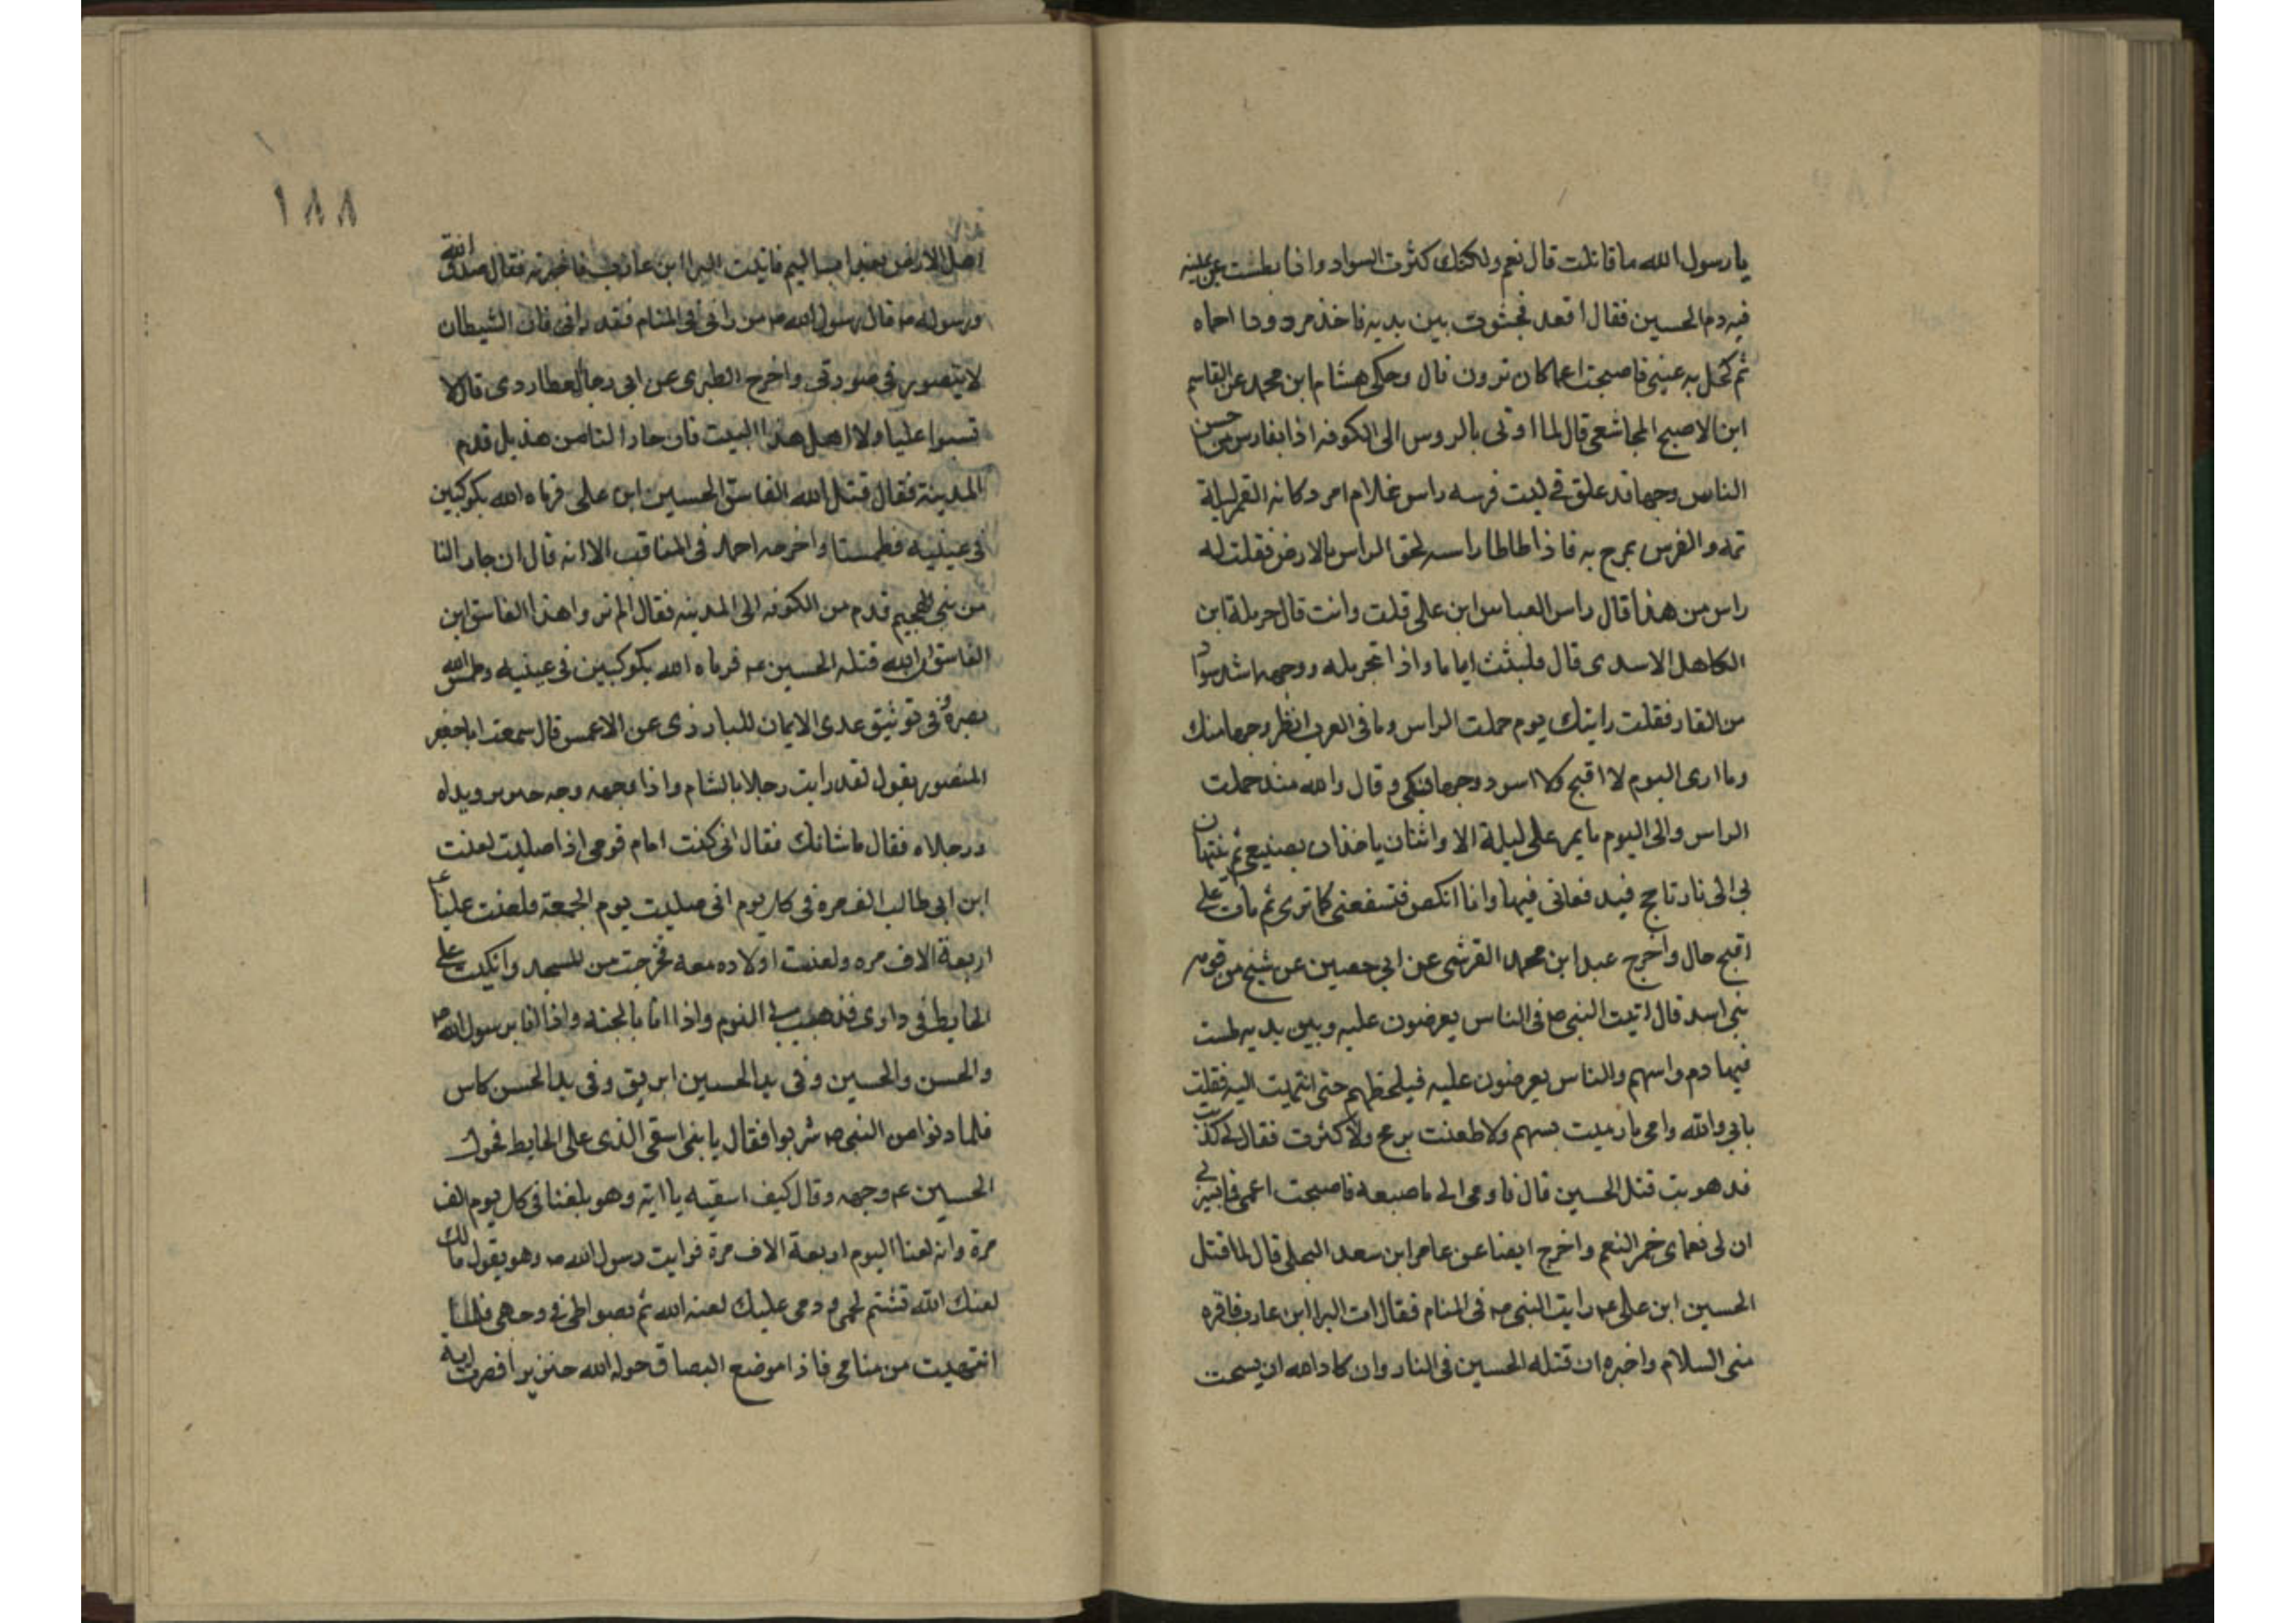 يا رسول الله ما قاتلت قال نعم ولكنك كثرت السواد واذا بطست عن عينه
فيه دم الحسين فقال اقعد فجثوت بين يديه فاخذ مرود وحا احماه
ثم كحل به عيني فاصبحت اعما كان ترون قال وحكى هشام ابن محمد عن القاسم
ابن الاصبح المجاشعي قال لما اوتي بالروس الى الكوفه اذا بفارس من احسن
الناس وجها قد علق في لبت فرسه راس غلام امرد كانه القمر ليلة
تمه والفرس يمرح به فاذا طاطا راسه لحق الراس بالارض فقلت له
راس من هذا قال راس العباس ابن علي قلت وانت قال حرملة ابن
الكاهل الاسدي قال فلبثت اياما واذا بحرمله ووجهه اشد سوادا
من القار فقلت رايتك يوم حملت الراس وما في العرب انظر وجها منك
وما ارى اليوم لا اقبح ولا اسود وجها فبكى وقال والله منذ حملت
الراس والى اليوم ما يمر علي ليلة الا واثنان ياخذان بضبعي ثم ينتهيان
بي الى نار تاجج فيدفعاني فيها وانا انكص فتسفعني كما ترى ثم مات على
اقبح حال واخرج عبد ابن محمد القرشي عن ابي حصين عن شيخ من قومه
بني اسد قال اتيت النبي ص في الناس يعرضون عليه وبين يديه طست
فيها دم واسهم والناس يعرضون عليه فيلحظهم حتى انتهيت اليه فقلت
بابي والله وامي ما رميت بسهم ولا طعنت برمح ولا كثرت فقال لي كذبت
قد هويت قتل الحسين قال فاومى الي باصبعه فاصبحت اعمى فما يسرني
ان لي بعماي حمر النعم واخرج ايضا عن عامر ابن سعد البجلي قال لما قتل
الحسين ابن علي ع رايت النبي ص في المنام فقال ات البرا ابن عازب فاقره
مني السلام واخبره ان قتله الحسين في النار وان كاد الله ان يسحت
اهل الارض بعذاب اليم فاتيت البرا ابن عازب فاخبرته فقال صدق الله
ورسوله ص قال رسول الله ص من راني في المنام فقد راني فان الشيطان
لا يتصور في صورتي واخرج الطبري عن ابي رجا العطاردي قال لا
تسبوا عليا ولا اهل هذا البيت فان جارا لنا من هذيل قدم
المدينة فقال قتل الله الفاسق الحسين ابن علي فرماه الله بكوكبين
في عينيه فطمستا واخرجه احمد في المناقب الا انه قال ان جارا لنا
من بني الهجيم قدم من الكوفه الى المدينه فقال الم تروا هذا الفاسق ابن
الفاسق ان الله قتله الحسين ع فرماه الله بكوكبين في عينيه وطمس الله
بصره وفي توثيق عرى الايمان للبارزي عن الاعمس قال سمعت ابا جعفر
المنصور يقول لقد رايت رجلا بالشام واذا وجهه وجه خنزير ويداه
ورجلاه فقال ما شانك فقال اني كنت امام قومي اذا صليت لعنت
ابن ابي طالب الف مره في كل يوم اني صليت يوم الجمعة فلعنت عليا ع
اربعة الاف مره ولعنت اولاده معه فخرجت من المسجد وانكيت على
الحايط في داري فذهب بي النوم واذا انا بالجنه واذا انا برسول الله ص
والحسن والحسين وفي يد الحسين ابريق وفي يد الحسن كاس
فلما دنوا من النبي ص شربوا فقال يا بني اسقي الذي على الحايط فحول
الحسين ع وجهه وقال كيف اسقيه يا ابته وهو يلعننا في كل يوم الف
مرة وانه لعننا اليوم اربعة الاف مرة فرايت رسول الله ص وهو يقول مالك
لعنك الله تشتم لحمي ودمي عليك لعنه الله ثم بصق في وجهي فلما
انتبهت من منامي فاذا موضع البصاق حوله الله خنزيرا فصرت اية
١٨٨